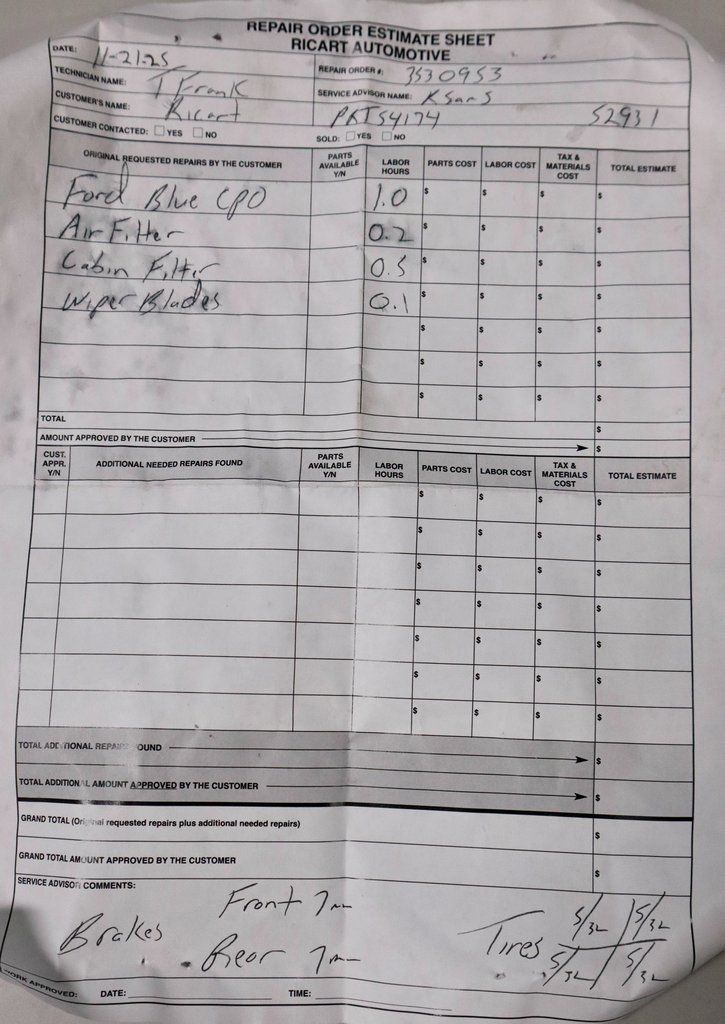 REPAIR ORDER ESTIMATE SHEET
RICART AUTOMOTIVE
DATE: 11-21-25
REPAIR ORDER #: 3530953
TECHNICIAN NAME: T Frank
SERVICE ADVISOR NAME: K Sars
CUSTOMER'S NAME: Ricart
PRTS4174 52931
CUSTOMER CONTACTED: YES NO
SOLD: YES NO
ORIGINAL REQUESTED REPAIRS BY THE CUSTOMER PARTS AVAILABLE Y/N LABOR HOURS PARTS COST LABOR COST TAX & MATERIALS COST TOTAL ESTIMATE
Ford Blue CPO 1.0 $ $ $ $
Air Filter 0.2 $ $ $ $
Cabin Filter 0.5 $ $ $ $
Wiper Blades 0.1 $ $ $ $
$ $ $ $
$ $ $ $
$ $ $ $
TOTAL $
AMOUNT APPROVED BY THE CUSTOMER $
CUST. APPR. Y/N ADDITIONAL NEEDED REPAIRS FOUND PARTS AVAILABLE Y/N LABOR HOURS PARTS COST LABOR COST TAX & MATERIALS COST TOTAL ESTIMATE
$ $ $ $
$ $ $ $
$ $ $ $
$ $ $ $
$ $ $ $
$ $ $ $
$ $ $ $
TOTAL ADDITIONAL REPAIRS FOUND $
TOTAL ADDITIONAL AMOUNT APPROVED BY THE CUSTOMER $
GRAND TOTAL (Original requested repairs plus additional needed repairs) $
GRAND TOTAL AMOUNT APPROVED BY THE CUSTOMER $
SERVICE ADVISOR COMMENTS:
Brakes Front 7mm
Rear 7mm
Tires 5/32 5/32
5/32 5/32
WORK APPROVED: DATE: TIME: